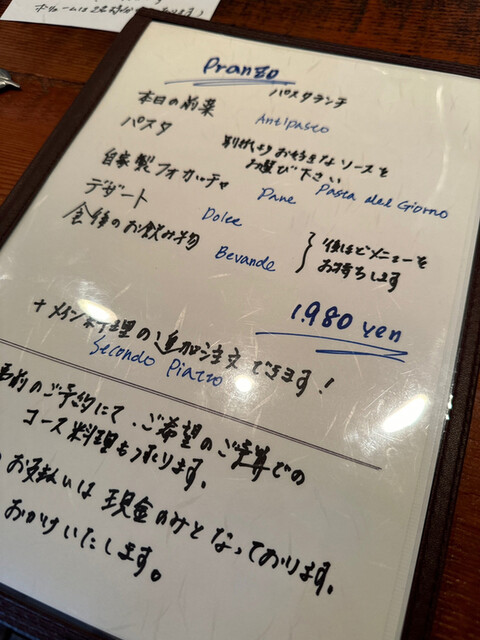 ボリュームは
Pranzo
パスタランチ
本日の前菜
Antipasto
パスタ
別紙よりお好きなソースを
お選び下さい
Pasta del Giorno
自家製フォカッチャ
Pane
デザート
Dolce
食後のお飲み物
Bevande
後ほどメニューを
お持ちします
1.980 yen
+メイン料理の追加注文できます!
Secondo Piatto
事前のご予約にて、ご希望のご予算での
コース料理も承ります。
お支払いは現金のみとなっております。
おかけいたします。